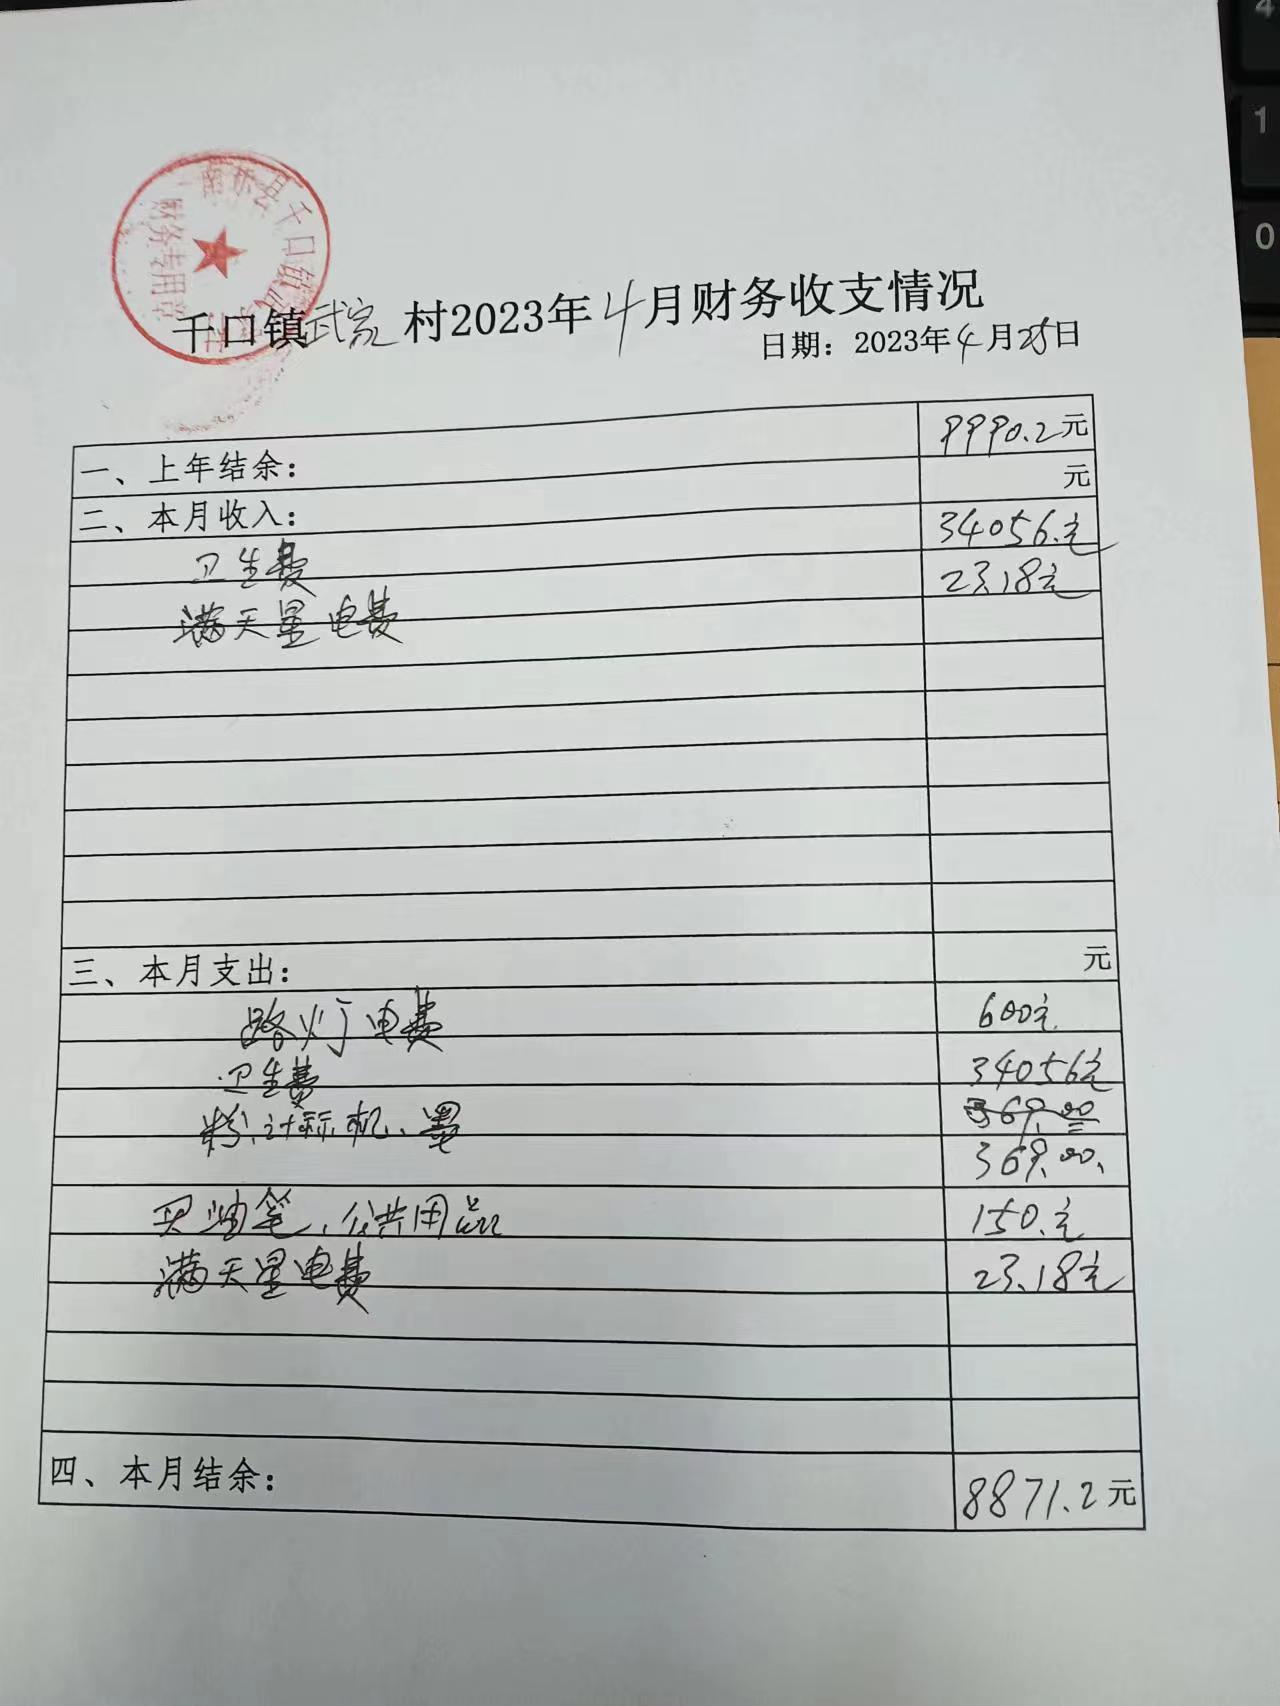 南乐县千口镇武家村
财务专用章
千口镇武家村2023年4月财务收支情况
日期：2023年4月25日
一、上年结余： 9990.2元
二、本月收入： 元
卫生费 34056.元
满天星电费 23.18元
三、本月支出： 元
路灯电费 600元
卫生费 34056元
粉、计标机、墨 369.00
369.00.
买油笔、公共用品 150.元
满天星电费 23.18元
四、本月结余： 8871.2元